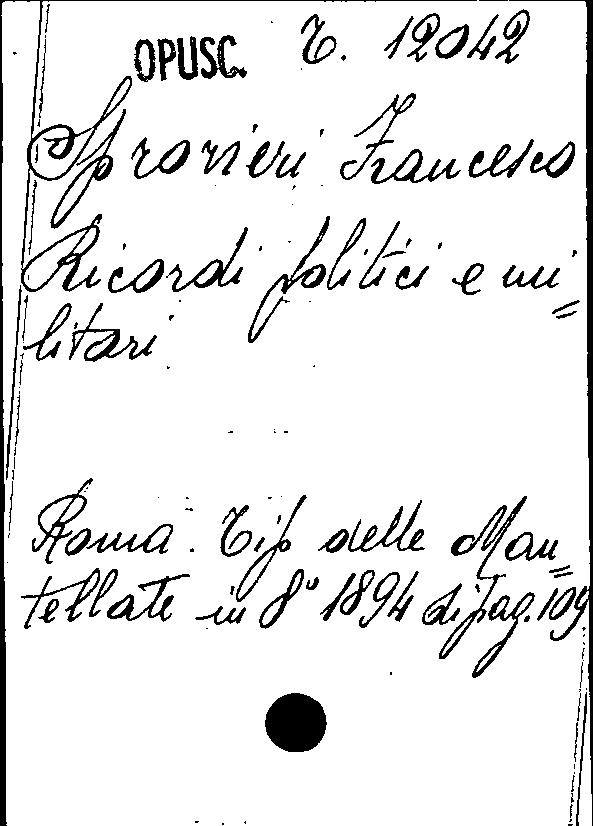 OPUSC. T. 12042
Sprovieri Francesco
Ricordi politici e mi=
litari
Roma. Tip delle Man=
tellate in 8° 1894 di pag. 109